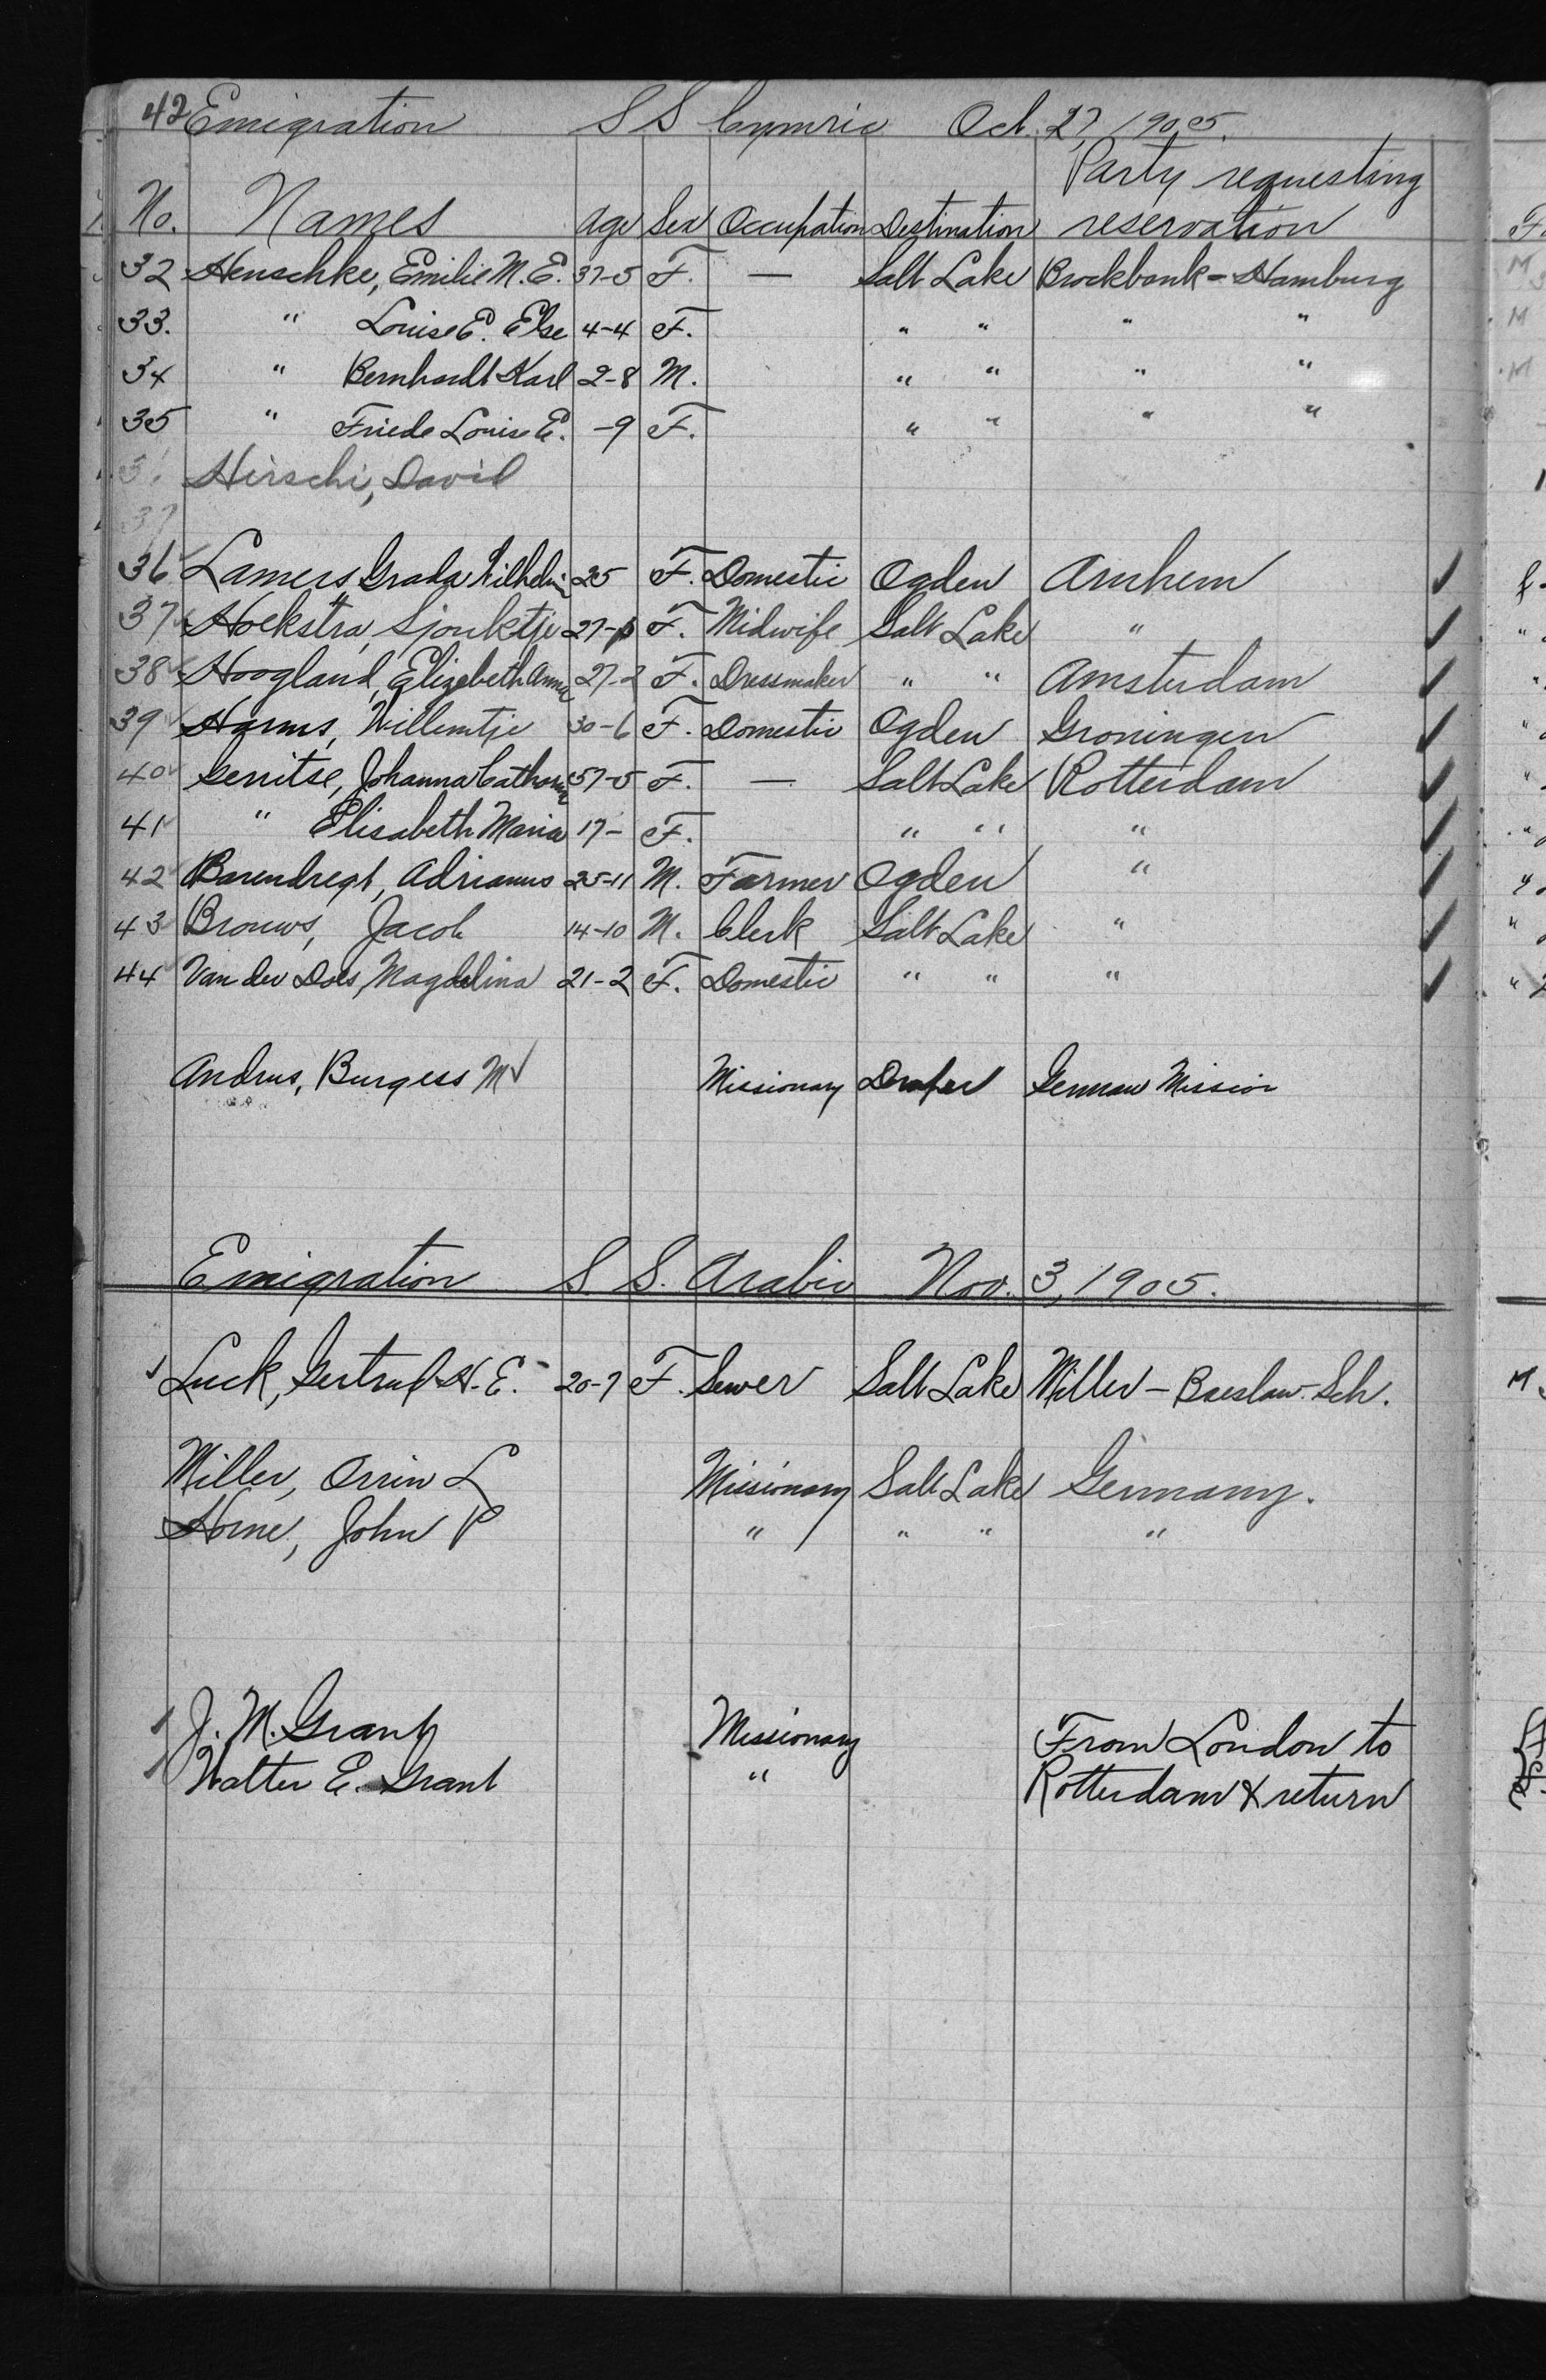 42 Emigration S S Cymric Oct. 27, 1905.
Party requesting
No. Names Age Sex Occupation Destination reservation
32 Henschke, Emilie M. E. 37-5 F. — Salt Lake Brockbank - Hamburg
33. " Louise E. Else 4-4 F. " " " "
34 " Bernhardt Karl 2-8 M. " " " "
35 " Friede Louise E. -9 F. " " " "
Hirschi, David
37
36 ✓ Lamers, Grada Wilhelm 25 F. Domestic Ogden Arnhem ✓
37 ✓ Hoekstra, Sjouktje 27- F. Midwife Salt Lake " ✓
38 ✓ Hoogland, Elizabeth Anna 27-2 F. Dressmaker " " Amsterdam ✓
39 ✓ Harms, Willemtje 30-6 F. Domestic Ogden Groningen ✓
40 ✓ Gerritse, Johanna Cathorina 57-5 F. — Salt Lake Rotterdam ✓
41 ✓ " Elisabeth Maria 17- F. " " " ✓
42 ✓ Barendregt, Adrianus 25-11 M. Farmer Ogden " ✓
43 ✓ Brouws, Jacob 14-10 M. Clerk Salt Lake " ✓
44 ✓ Van der Does, Magdalina 21-2 F. Domestic " " " ✓
Andrus, Burgess M ✓ Missionary Draper German Mission
Emigration S. S. Arabic Nov. 3, 1905.
1 Luck, Gertrud H. E. 20-7 F. Sewer Salt Lake Miller - Breslau - Sch.
Miller, Orrin L Missionary Salt Lake Germany.
Horne, John P " " " "
1 J. M. Grant Missionary From London to
1 Walter E. Grant " Rotterdam & return